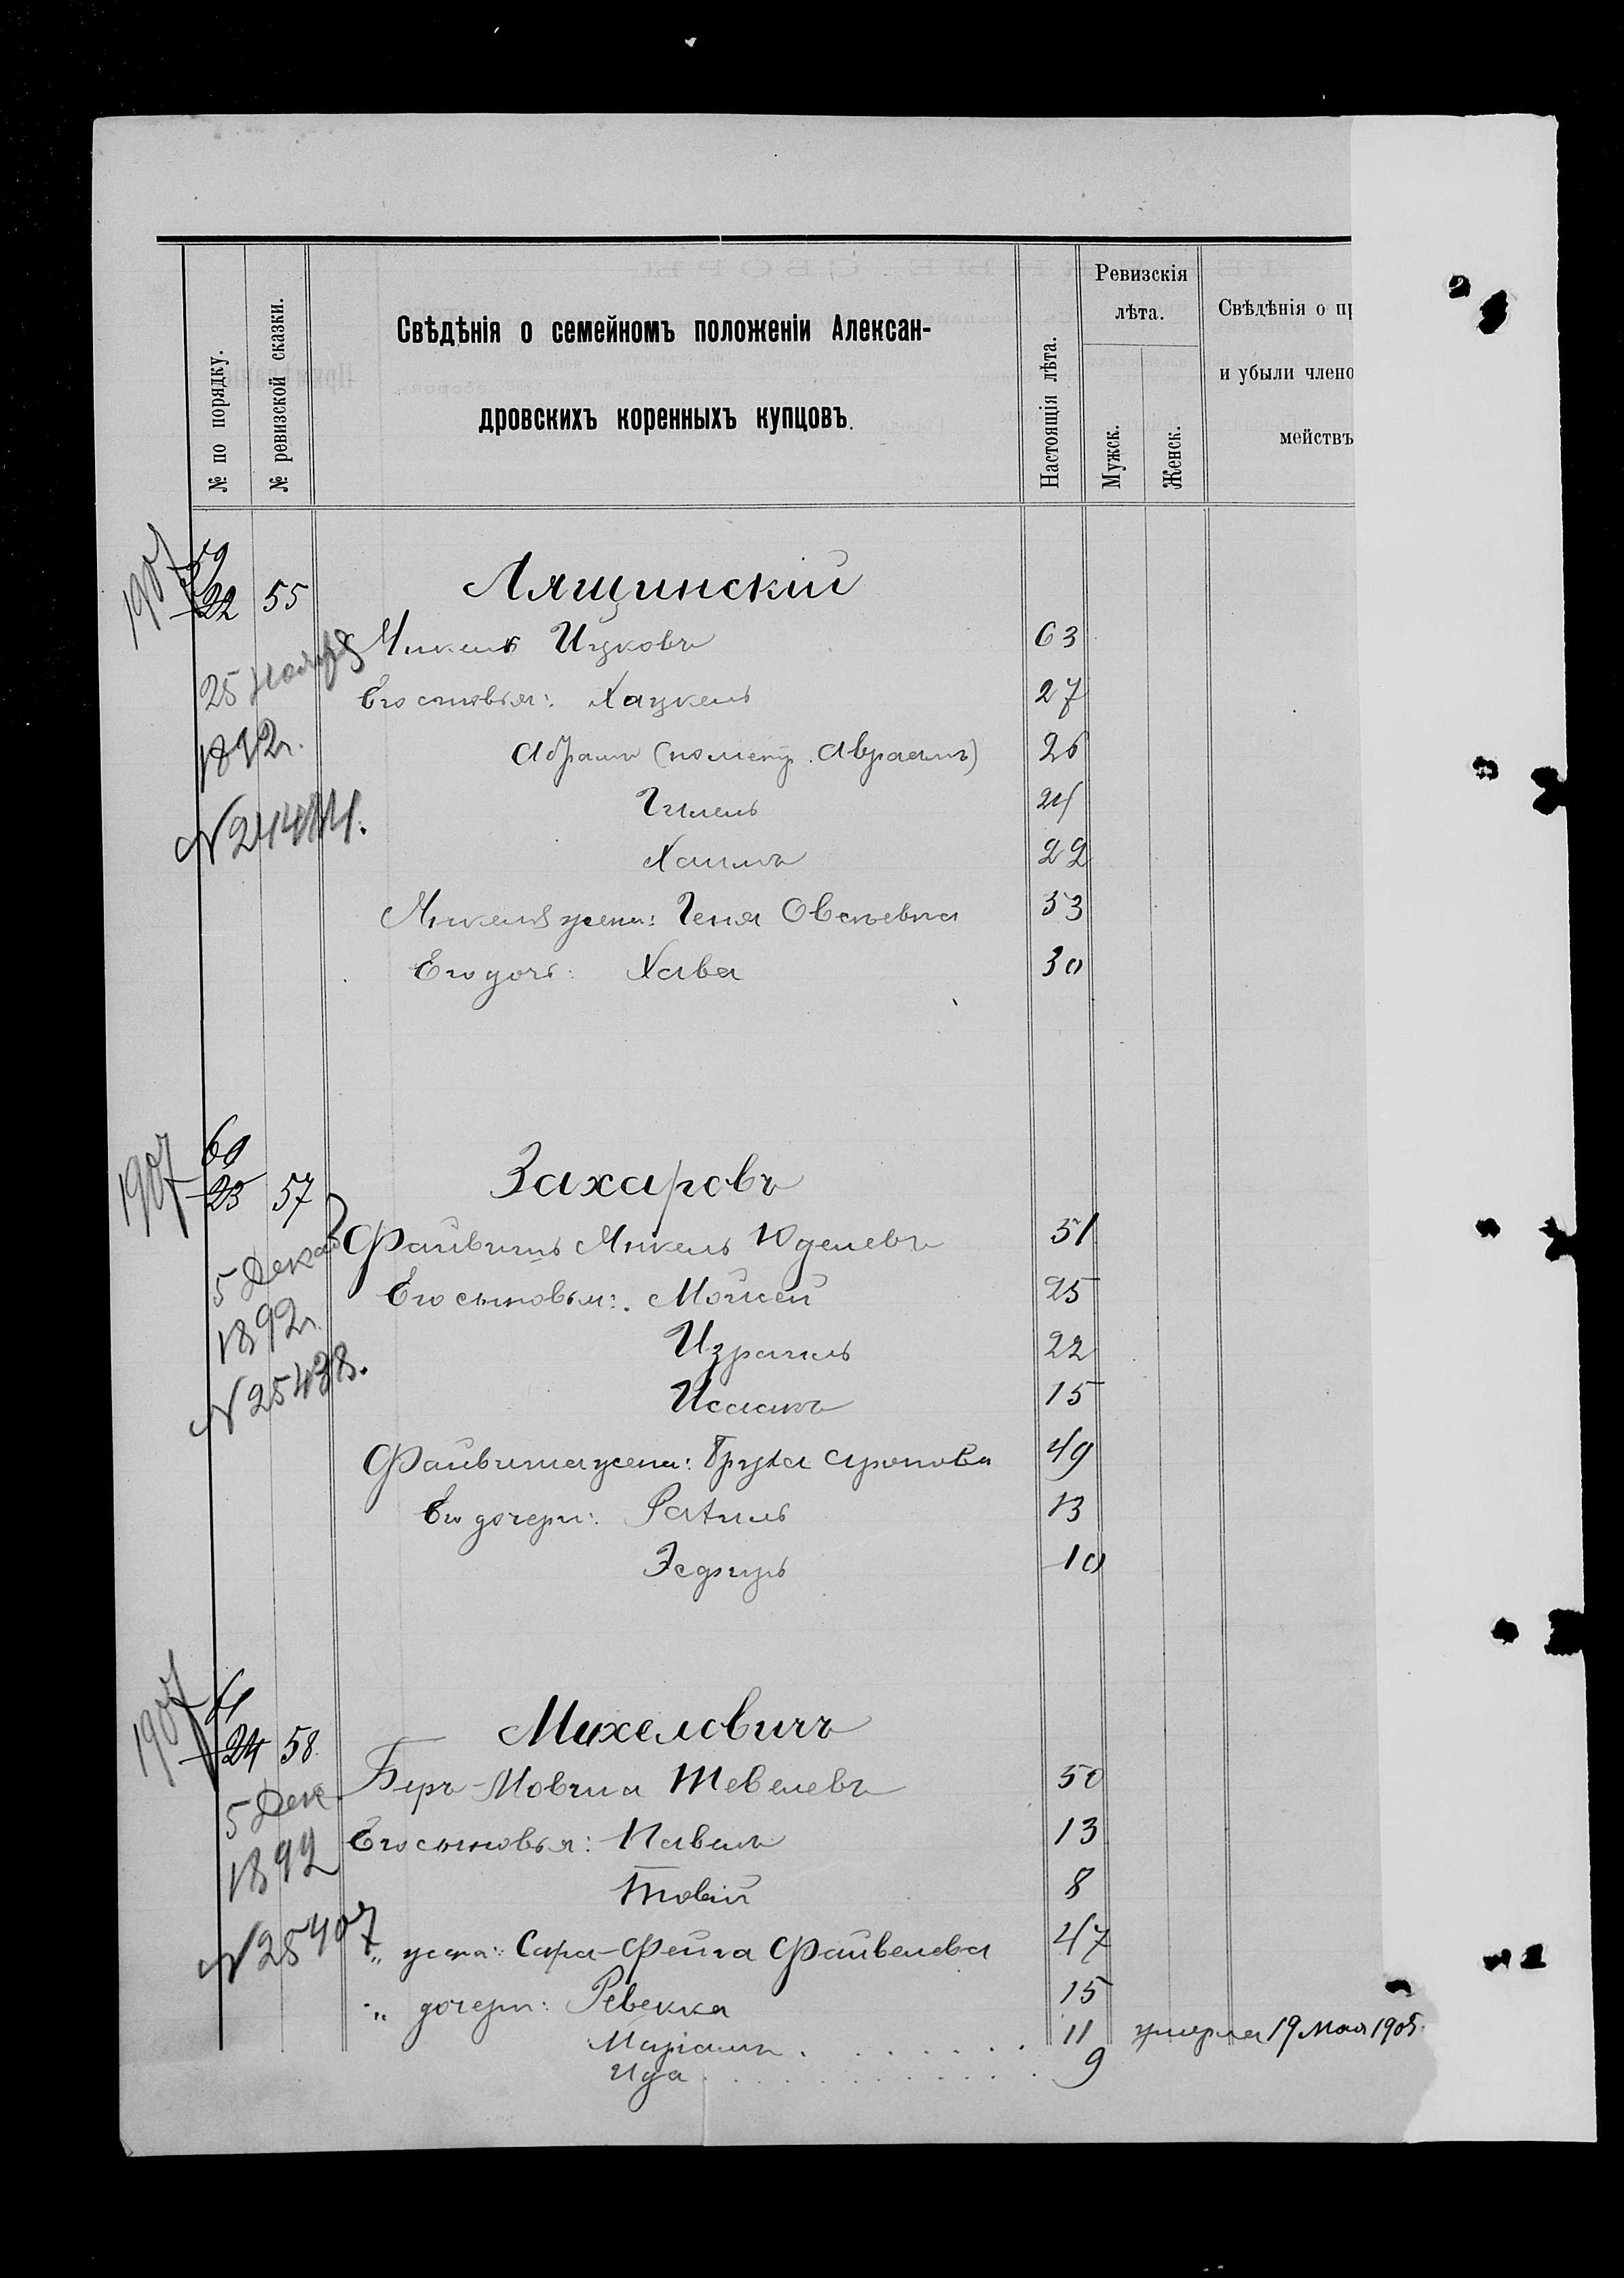 № по порядку.
№ ревизской сказки.
Свѣдѣнія о семейномъ положеніи Алексан-
дровскихъ коренныхъ купцовъ.
Настоящія лѣта.
Ревизскія
лѣта.
Мужск.
Женск.
Свѣдѣнія о пр
и убыли члено
мействъ
1907
59
22 55 Лящинскій
Янкель Ицковъ 63
25 Ноября
Его сыновья: Хацкель 27
1892г.
Абрамъ (по метр. Авраамъ) 26
Гилель 24
N24484.
Хаимъ 22
Янкеля жена: Геня Овсѣевна 53
Его дочь: Хава 30
1907
60
23 57 Захаровъ
Файвишъ Янкель Юделевъ 51
5 Декаб
Его сыновья: Мойсей 25
1892г.
Израиль 22
N25438.
Исаакъ 15
Файвиша жена: Груня Аронова 49
Его дочери: Рахиль 13
Эсфирь 10
1907
61
24 58 Михелевичъ
Беръ-Мовша Тевелевъ 50
5 Дек
Его сыновья: Павелъ 13
1892
Товій 8
N25407
„ жена: Сара-Фейга Файвелева 47
„ дочери: Ревекка 15
Маріамъ 11 умерла 19 Мая 1905.
Ида 9